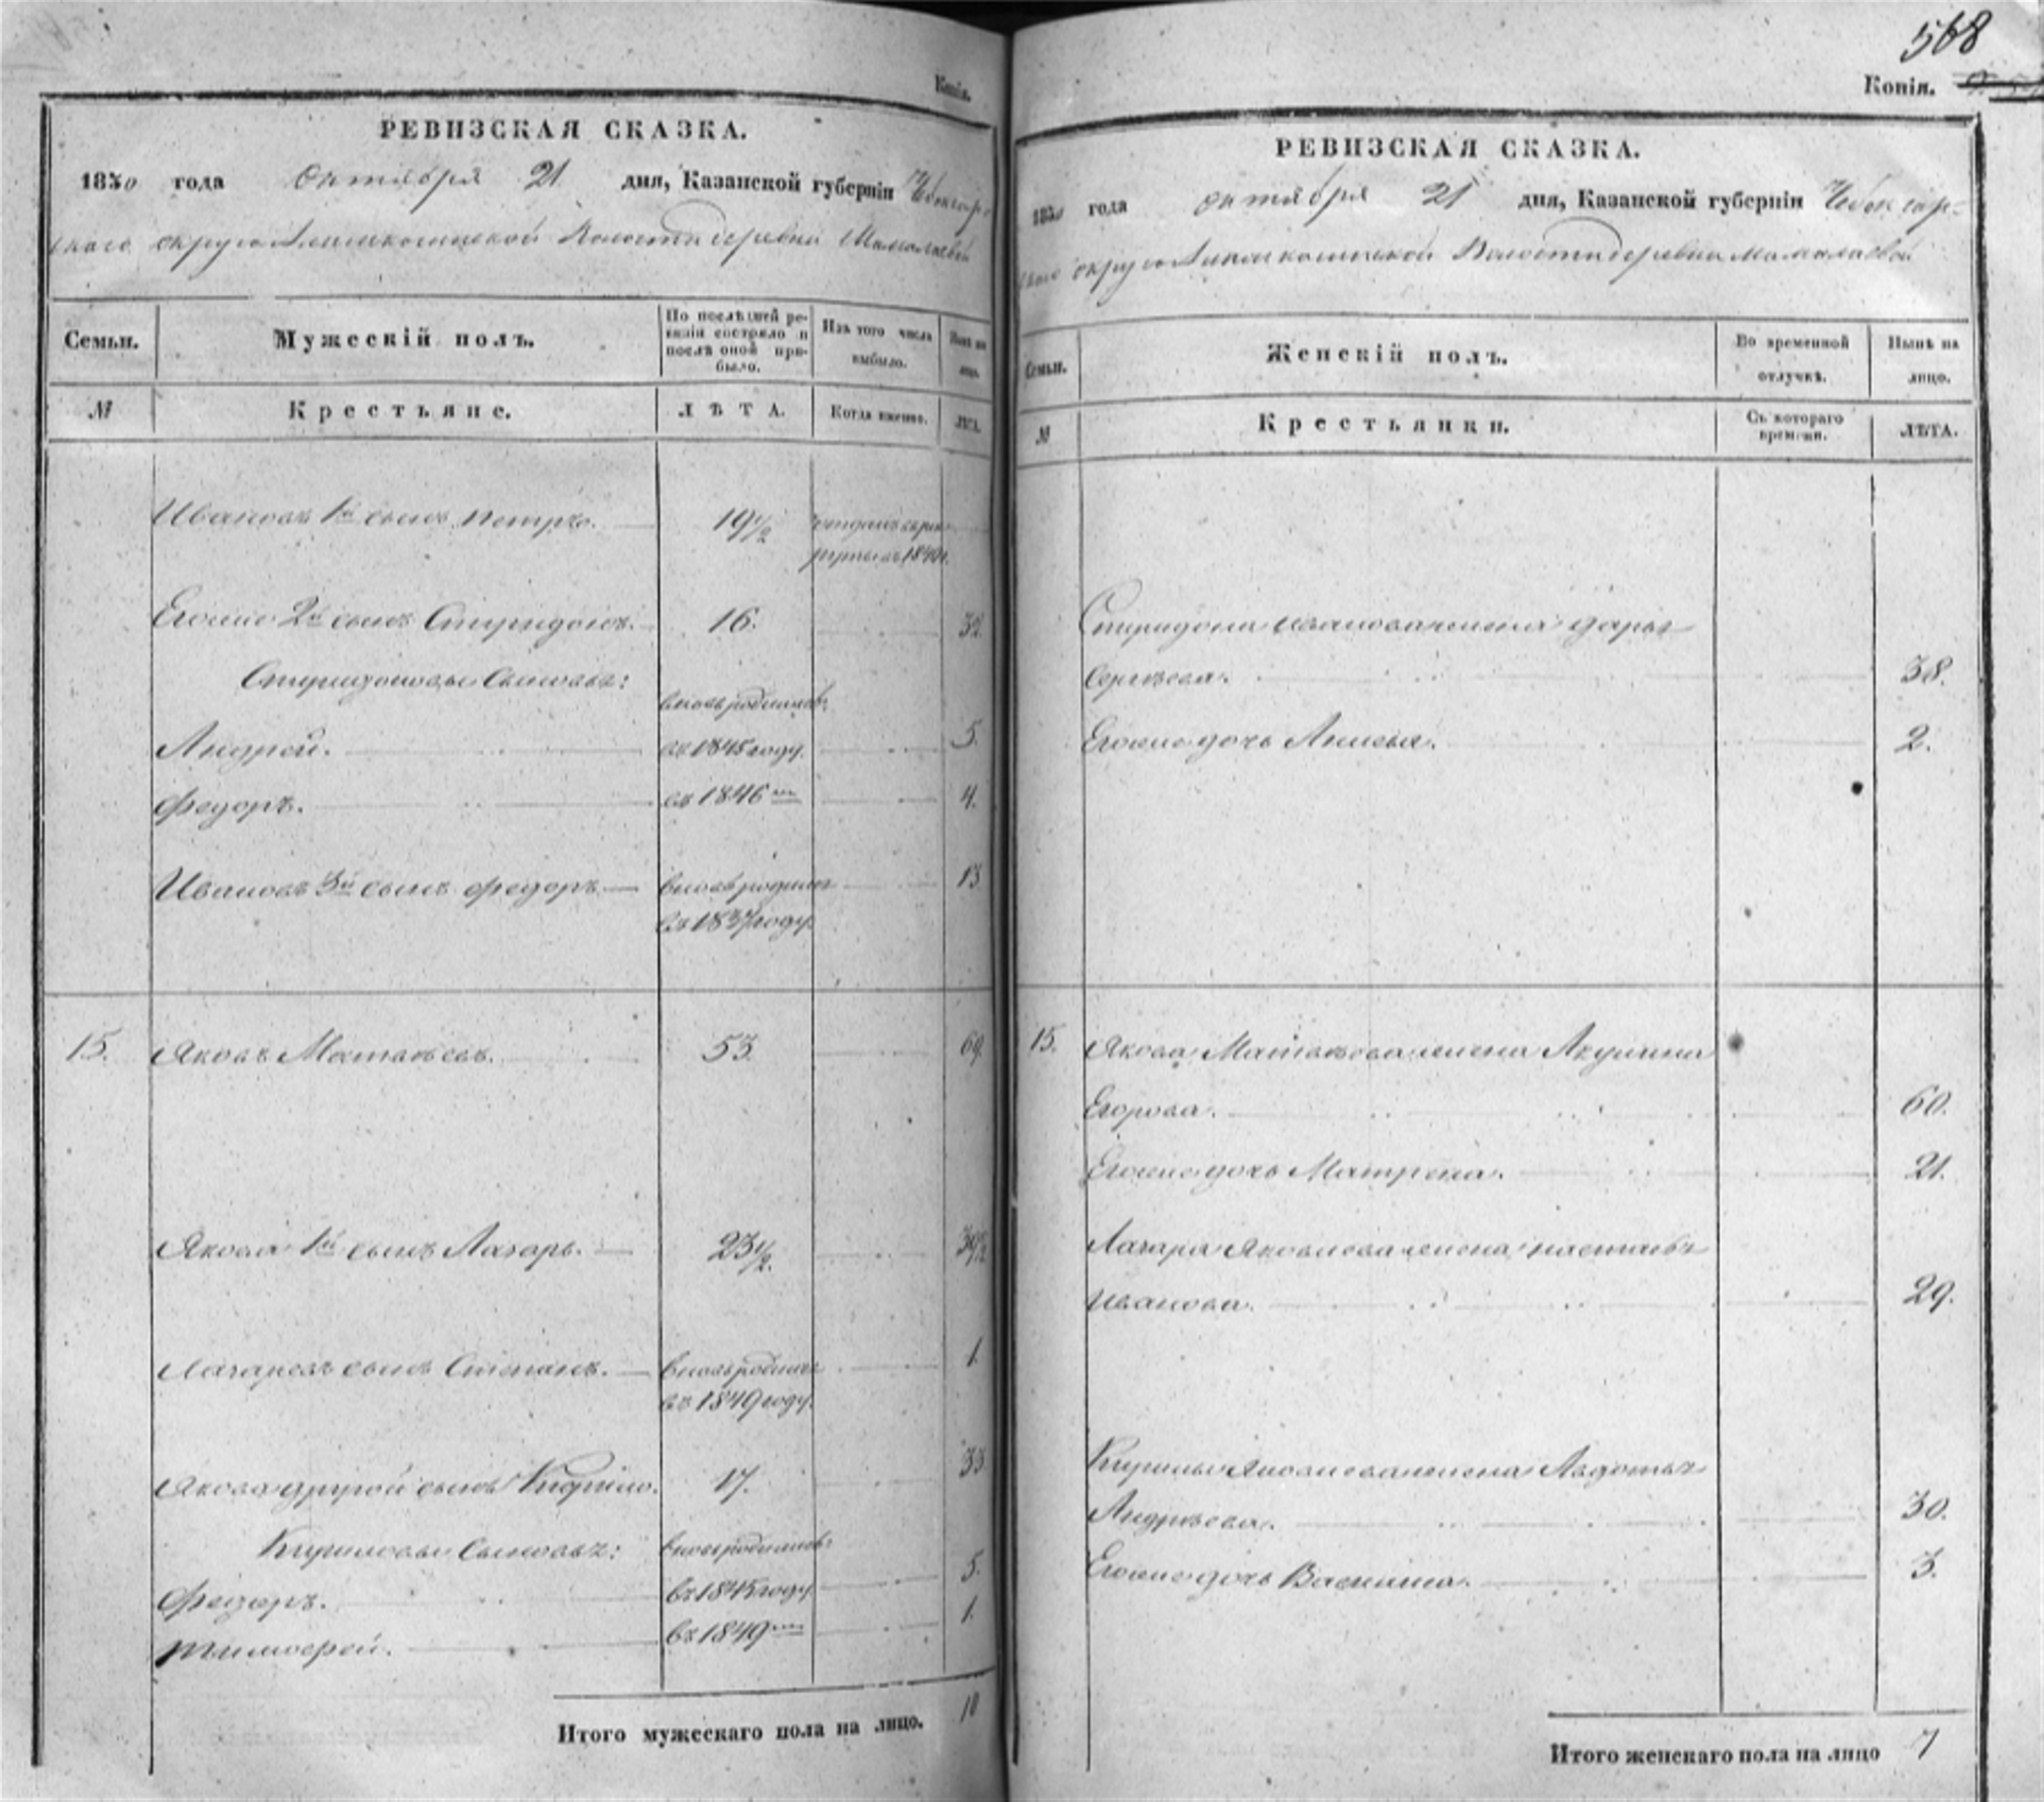 Копія.
РЕВИЗСКАЯ СКАЗКА.
1850 года октября 21 дня, Казанской губерніи Чебоксар-
скаго округа Алымкасинской Волости деревни
Семьи.
Мужескій полъ.
По послѣдней ре-
визіи состояло и
послѣ оной при-
было.
Изъ того числа
выбыло.
Нынѣ на
лицо.
№
Крестьяне.
ЛѢТА.
Когда именно.
ЛѢТА.
Ивановъ 1й сынъ Петръ. 19½ отданъ въ рек-
руты въ 1840г.
Егоже 2й сынъ Спиридонъ. 16. 32.
Спиридоновы сыновья: вновьродился
Андрей. въ 1845 году. 5.
Федоръ. въ 1846 4.
Ивановъ 3й сынъ Федоръ. вновьродился 13.
въ 1837 году.
15. Яковъ Матвѣевъ. 53. 69.
Якова 1й сынъ Лазарь. 23½.
Лазаревъ сынъ Степанъ. вновьродился 1.
въ 1849 году.
Якова другой сынъ Кирило. 17. 33
Кириловы сыновья: вновьродился
Федоръ. въ 1845 году 5.
Тимофей. въ 1849 1.
Итого мужескаго пола на лицо. 10
568
Копія.
РЕВИЗСКАЯ СКАЗКА.
1850 года октября 21 дня, Казанской губерніи Чебоксар-
скаго округа Алымкасинской Волости деревни
Семьи.
Женскій полъ.
Во временной
отлучкѣ.
Нынѣ на
лицо.
№
Крестьянки.
Съ котораго
времени.
ЛѢТА.
Спиридона Иванова жена Дарья
Сергѣева. 38.
Егоже дочь Анисья. 2.
15. Якова Матвѣева жена Акулина
Егорова. 60.
Егоже дочь Матрена. 21.
Лазаря Яковлева жена Настасья
Иванова. 29.
Кирилы Яковлева жена Авдотья
Андрѣева. 30.
Егоже дочь Васелиса. 3.
Итого женскаго пола на лицо 7